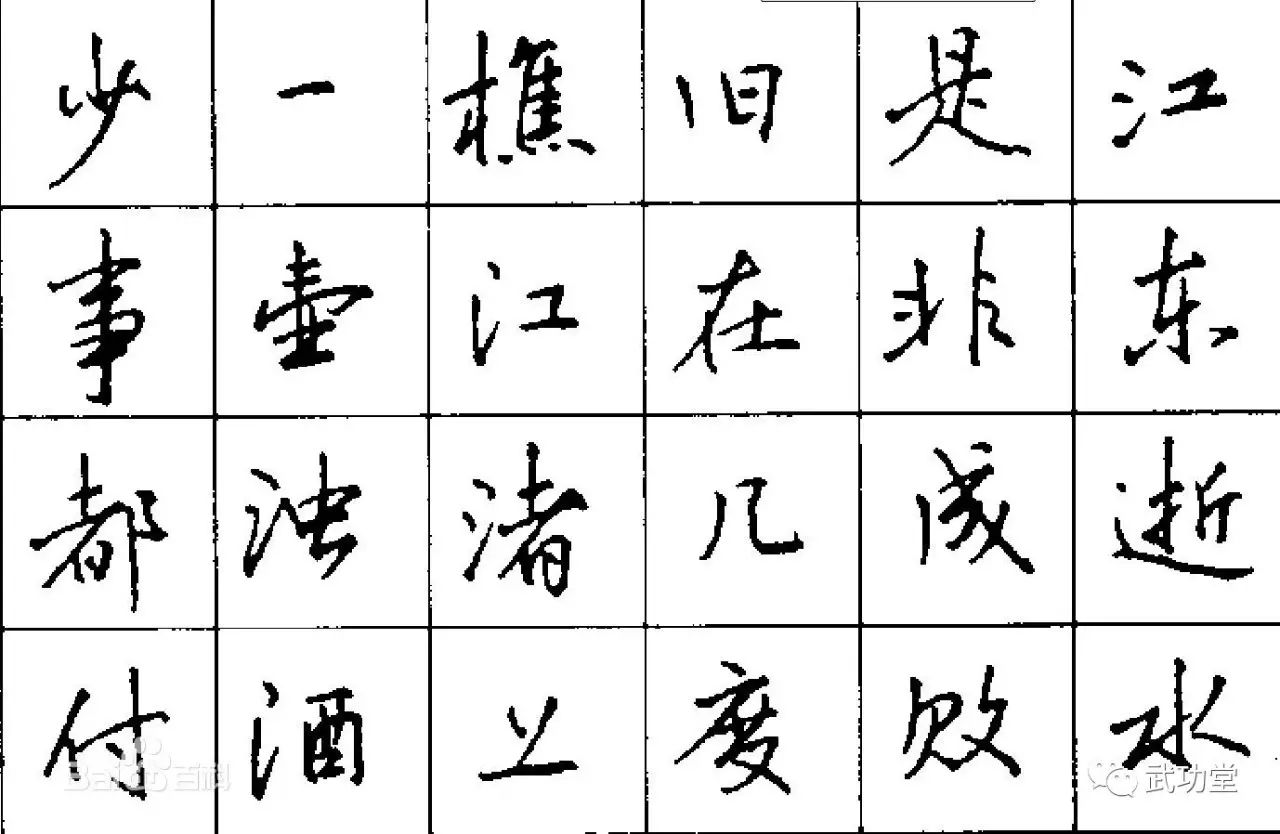 江东逝水
是非成败
旧在几度
樵江渚上
一壶浊酒
少事都付
Baidu百科
武功堂